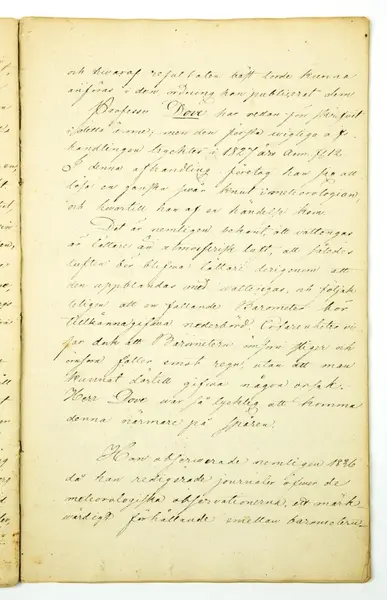 och hvaraf resultaten bäst torde kunna
anföras i den ordning han publicerat dem
Professor Dove har redan för skrifvit
i detta ämne, men den första wigtiga af
handlingen trycktes i 1827 års Ann. f. 12
I denna afhandling företog han sig att
lösa en ganska svår knut i meteorologien,
och hwartill han af en händelse kom
Det är nemligen bekant, att vattengas
är lättare än atmosferisk luft, att således
luften bör blifva lättare derigenom att
den uppblandas med vattengas, och följak
teligen att en fallande Barometer bör
tillkännagifva nederbörd. Erfarenheten vi
sar dock att Barometern innan stiger och
innan faller emot regn, utan att man
kunnat dertill gifva någon orsak.
Herr Dove war så lycklig att komma
denna närmare på spåren.
Han observerade nemligen 1826
då han redigerade journaler öfver de
meteorologiska observationerna, ett märk
värdigt förhållande emellan barometern